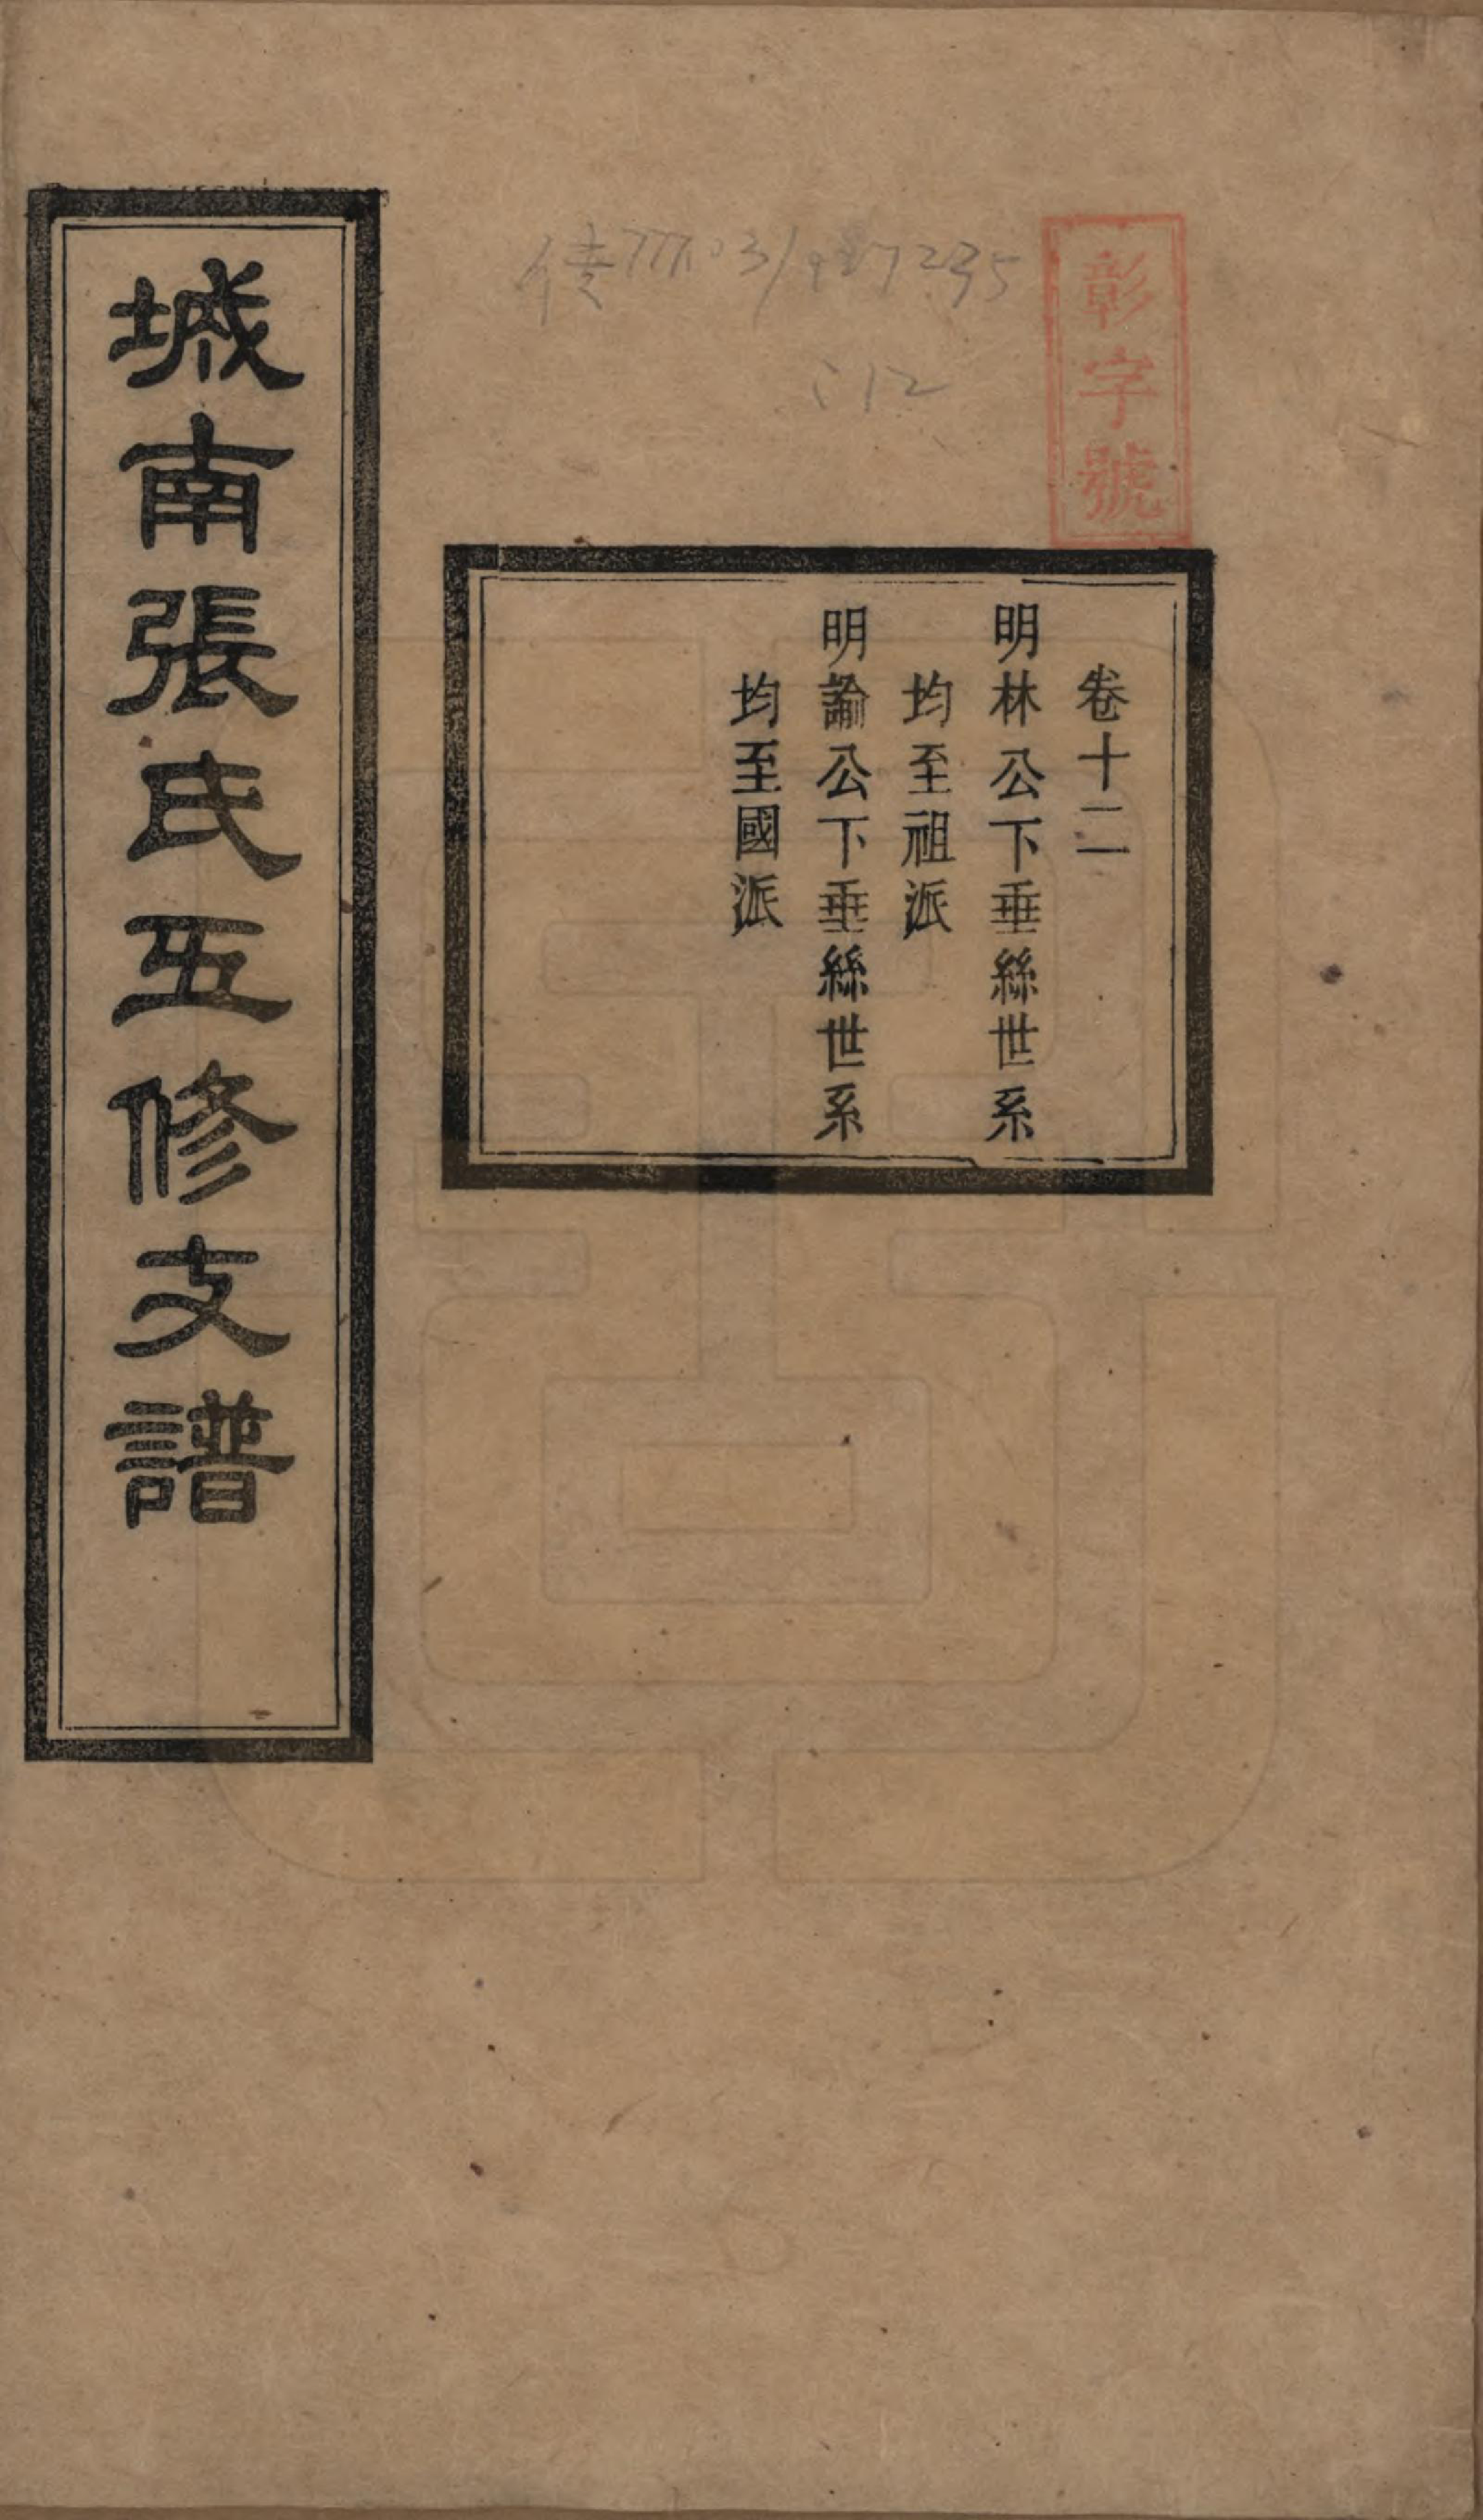 彰字號
卷十二
明林公下垂絲世系
均至祖派
明論公下垂絲世系
均至國派
城南張氏五修支譜